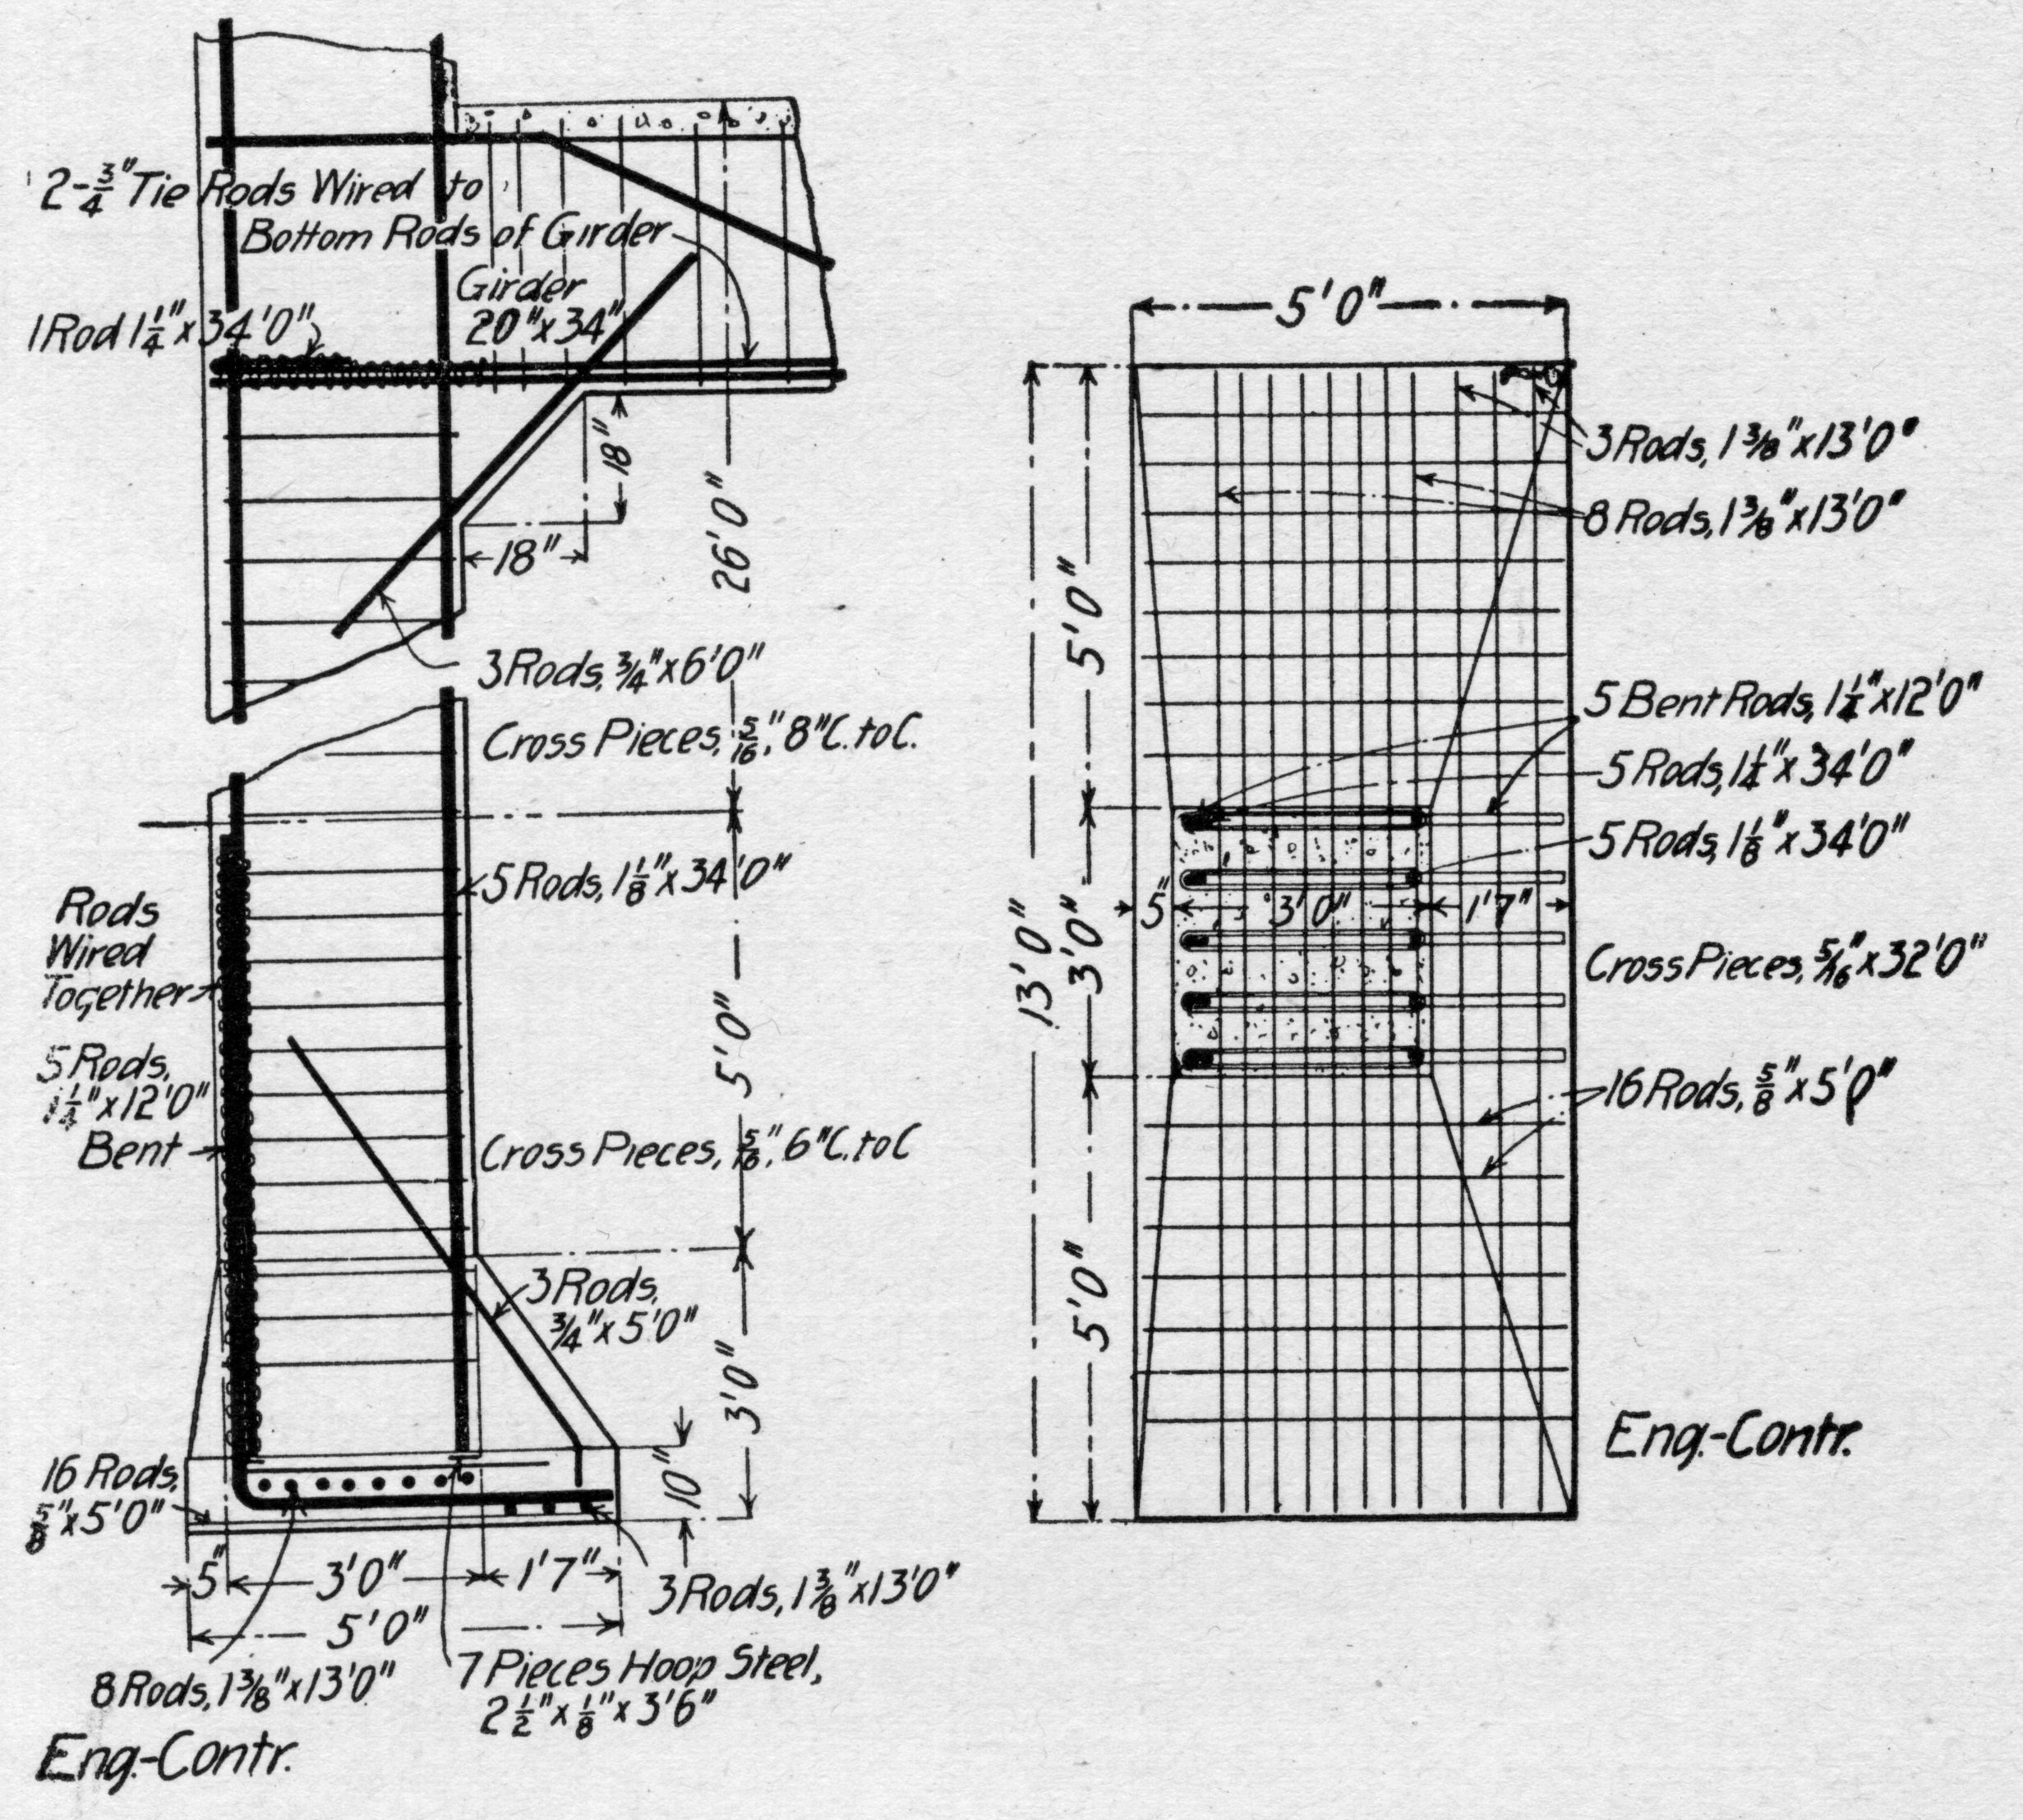 2-3/4" Tie Rods Wired to
Bottom Rods of Girder
Girder
20"x34"
1 Rod 1 1/4"x34'0"
18"
18"
26'0"
3 Rods, 3/4"x6'0"
Cross Pieces, 5/16", 8"C. to C.
5 Rods, 1 1/8"x34'0"
Rods
Wired
Together
5'0"
5 Rods,
1 1/4"x12'0"
Bent
Cross Pieces, 5/16", 6"C. to C
3 Rods,
3/4"x5'0"
3'0"
10"
16 Rods,
5/8"x5'0"
5"
3'0"
1'7"
5'0"
3 Rods, 1 3/8"x13'0"
8 Rods, 1 3/8"x13'0"
7 Pieces Hoop Steel,
2 1/2"x 1/8"x 3'6"
Eng.-Contr.
5'0"
3 Rods, 1 3/8"x13'0"
8 Rods, 1 3/8"x13'0"
5'0"
5 Bent Rods, 1 1/4"x12'0"
5 Rods, 1 1/4"x34'0"
5 Rods, 1 1/8"x34'0"
5"
3'0"
1'7"
13'0"
3'0"
Cross Pieces, 5/16"x32'0"
16 Rods, 5/8"x5'0"
5'0"
Eng.-Contr.